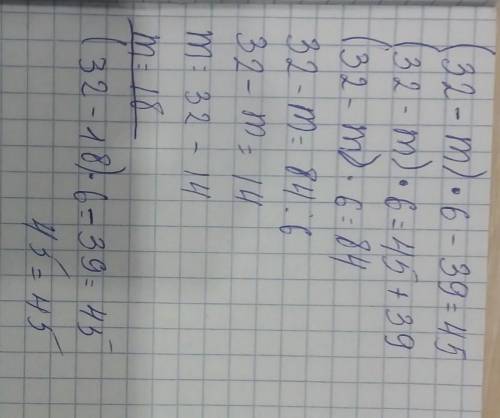 (32 - m) · 6 - 39 = 45
(32 - m) · 6 = 45 + 39
(32 - m) · 6 = 84
32 - m = 84 : 6
32 - m = 14
m = 32 - 14
m = 18
(32 - 18) · 6 = 39 = 45
45 = 45